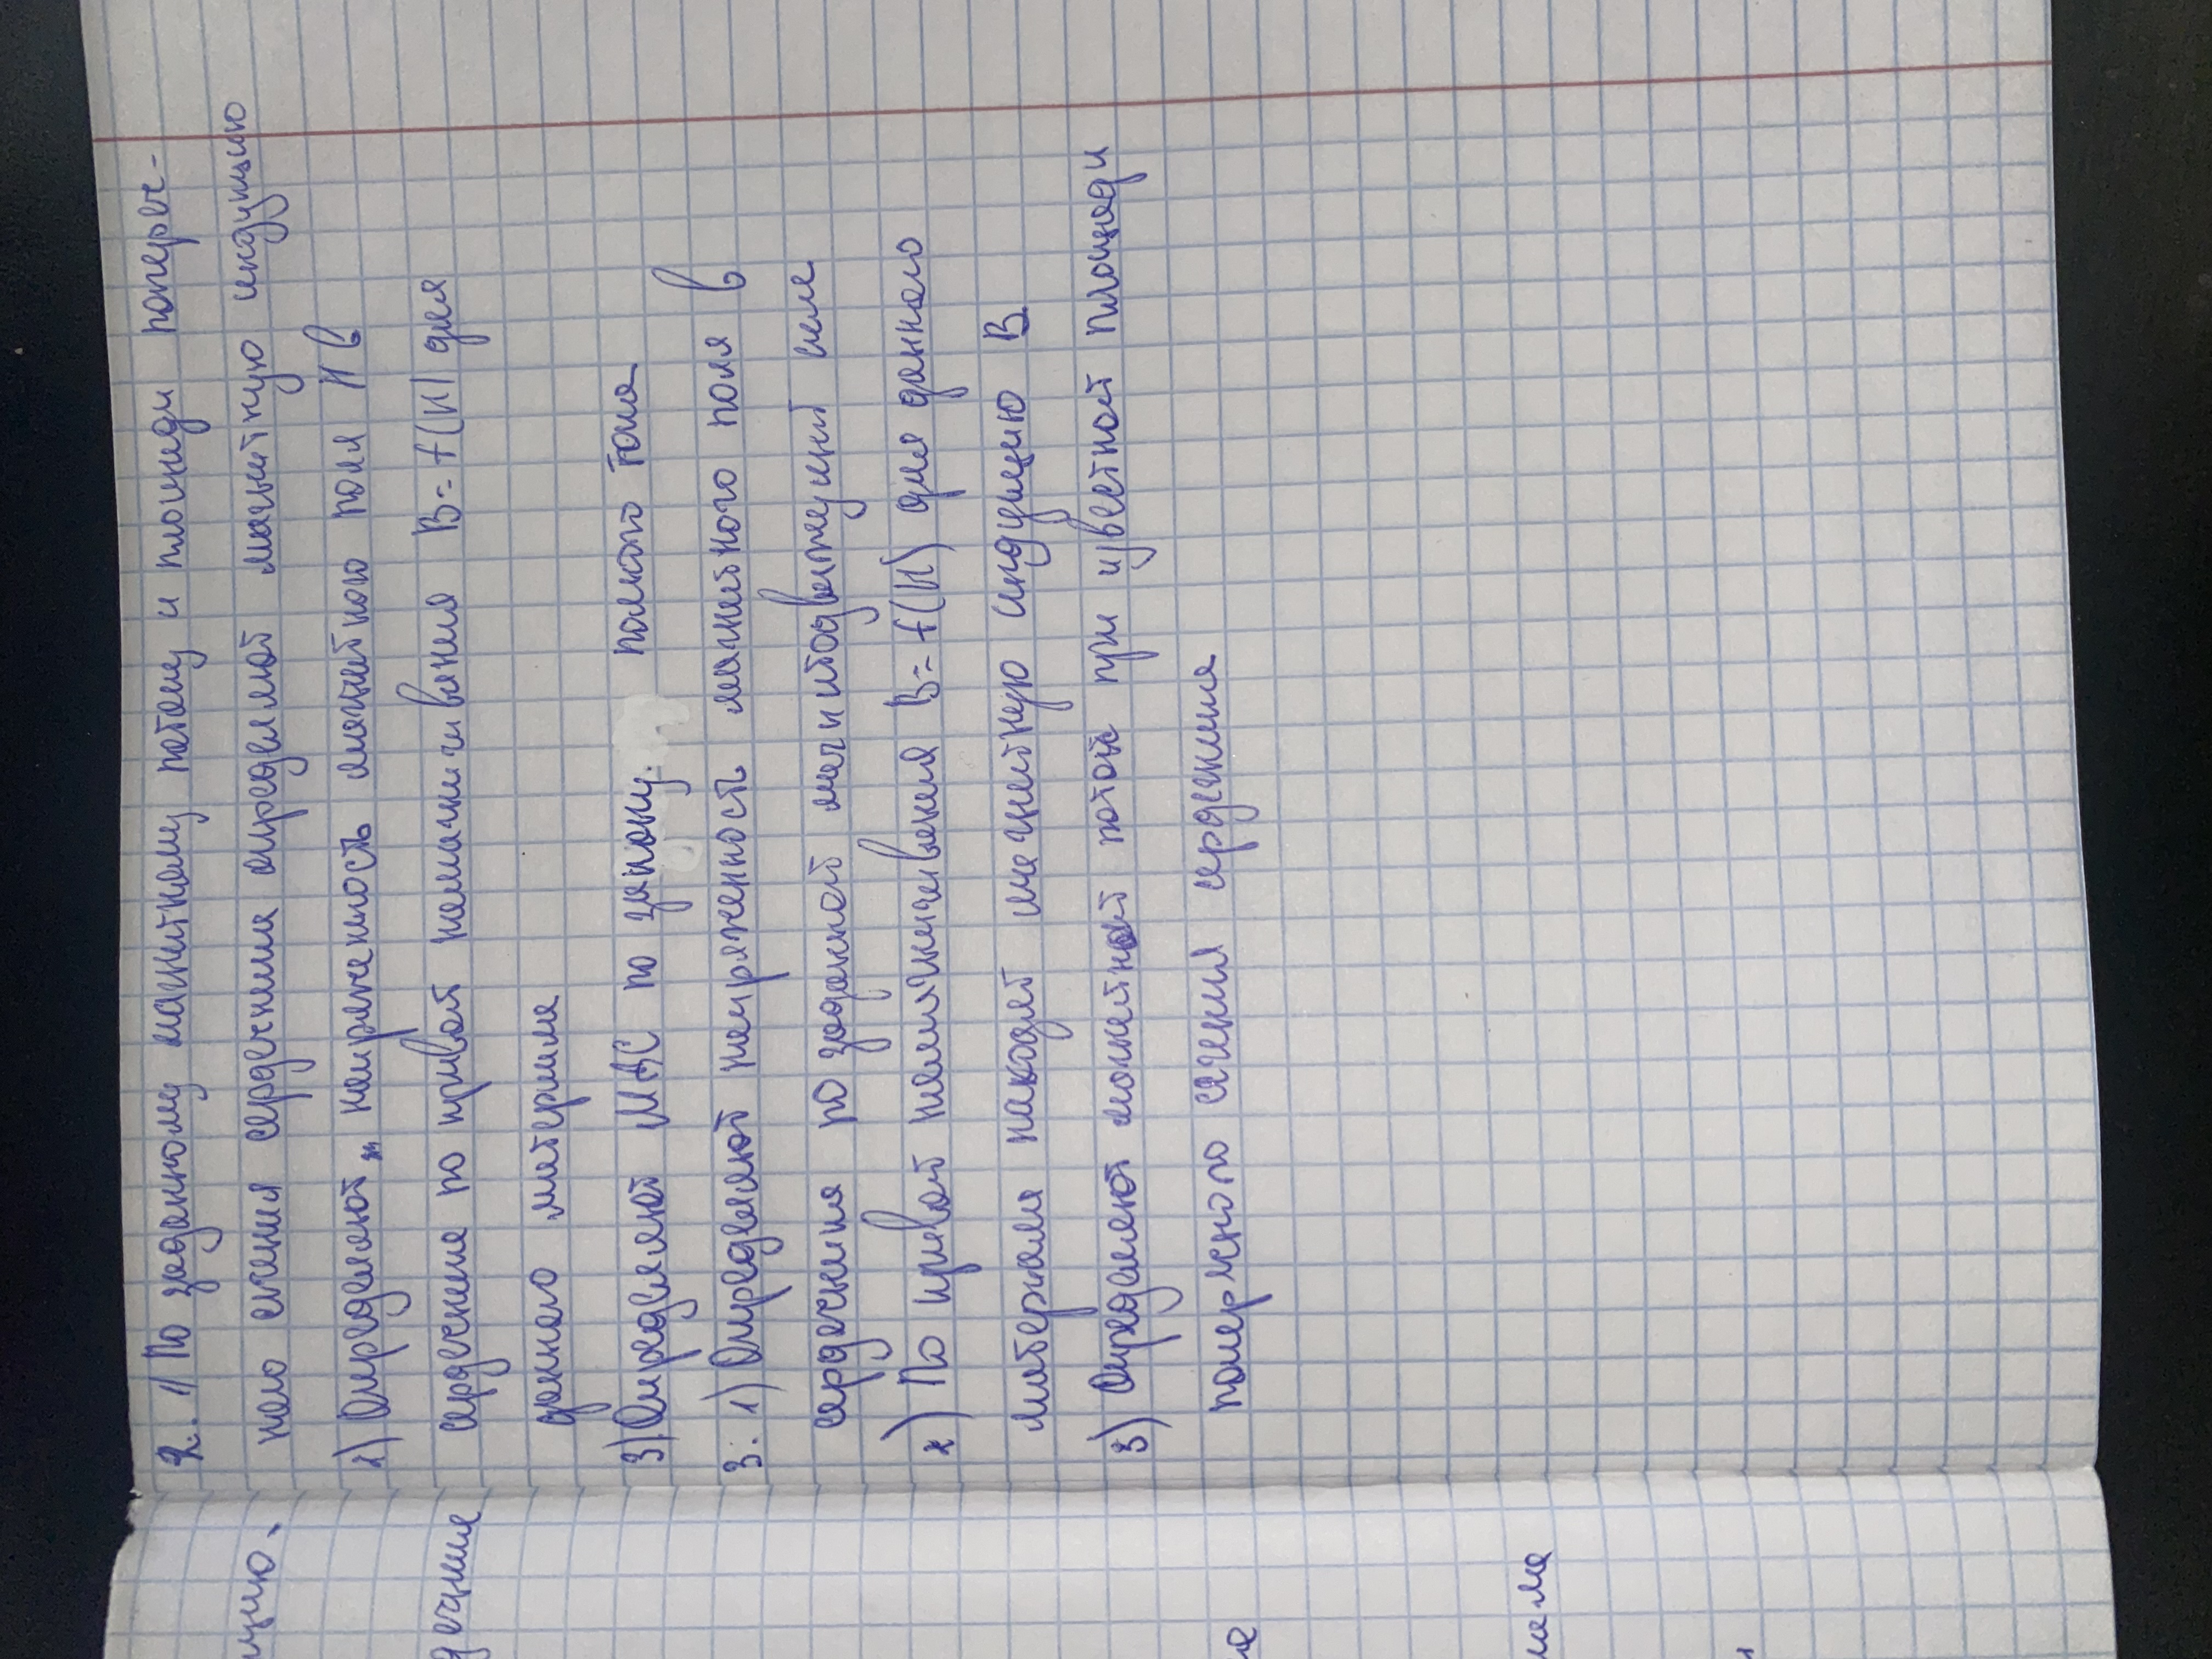 2. 1) По заданному магнитному потоку и площади попереч-
ного сечения сердечника определяют магнитную индукцию
2) Определяют напряженность магнитного поля H в
сердечнике по кривой намагничивания B=f(H) для
данного материала
3) Определяют МДС по закону полного тока
3. 1) Определяют напряженность магнитного поля в
сердечника по заданной магнитодвижущей силе
2) По кривой намагничивания B=f(H) для данного
материала находят магнитную индукцию B
3) Определяют магнитный поток при известной площади
поперечного сечения сердечника
цию.
дечнике